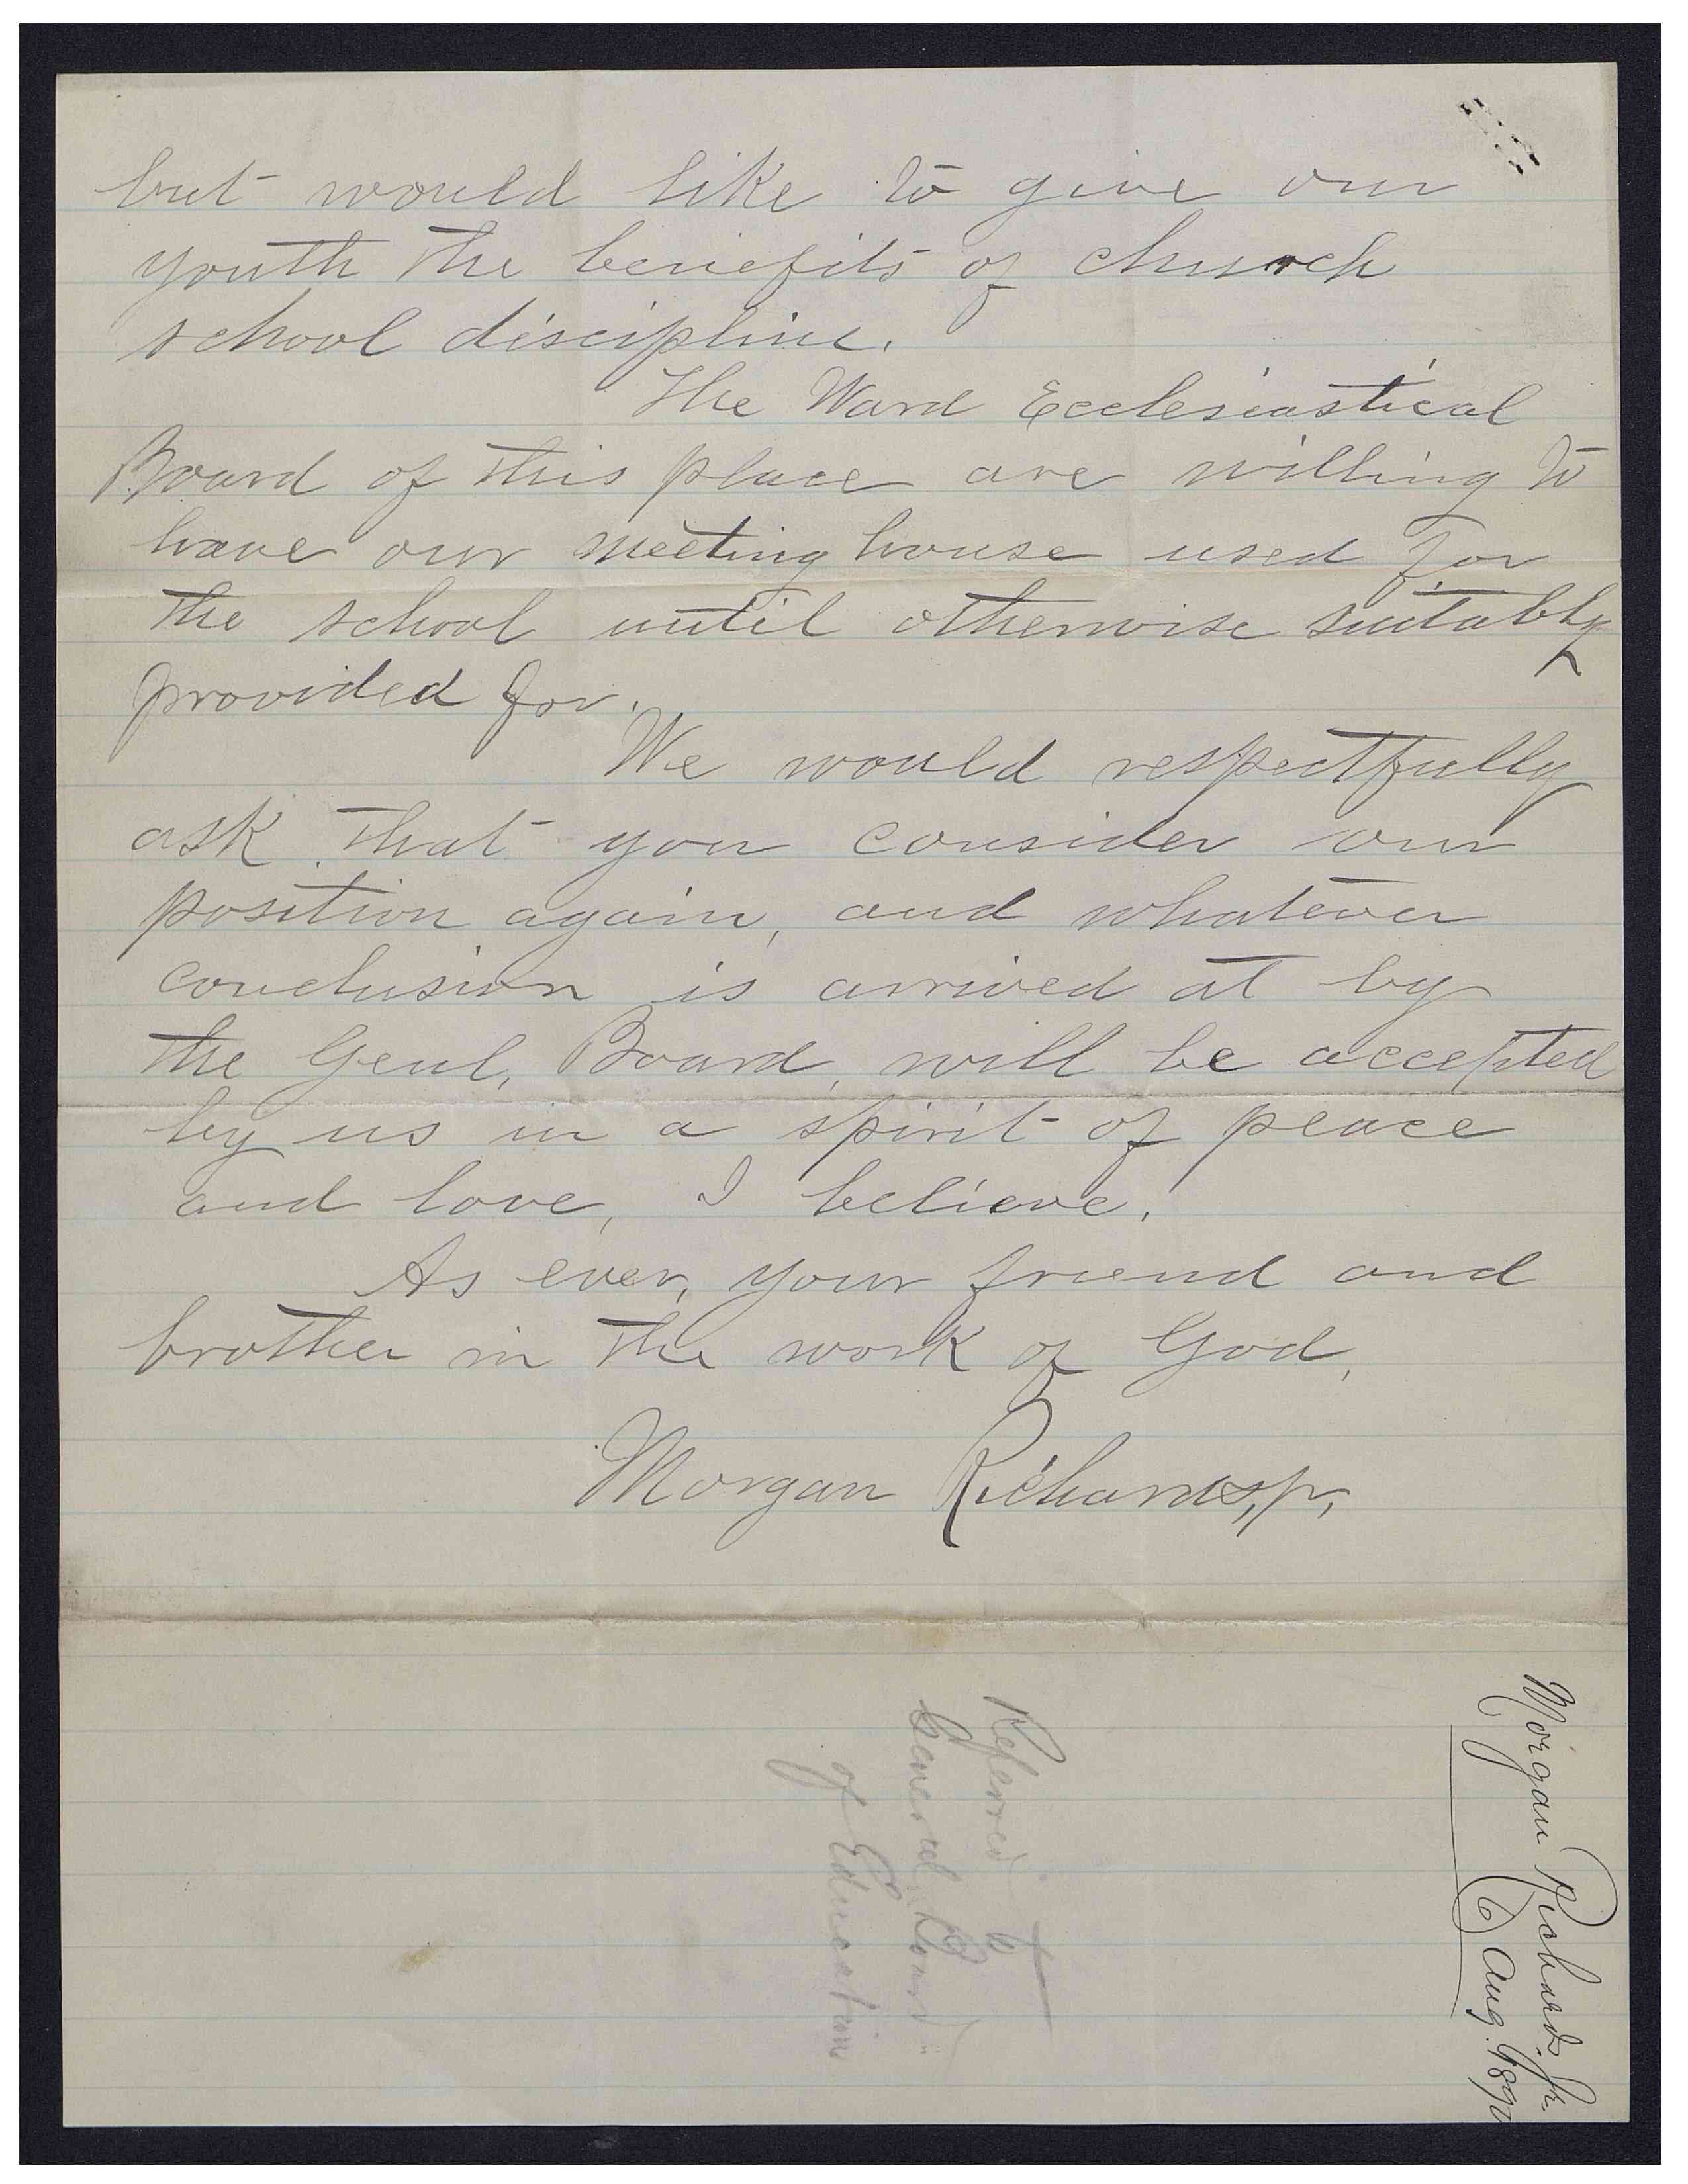 but would like to give our
youth the benefits of church
school discipline.
The Ward Ecclesiastical
Board of this place are willing to
have our meeting house used for
the school until otherwise suitably
provided for.
We would respectfully
ask that you consider our
position again, and whatever
conclusion is arrived at by
the Genl. Board, will be accepted
by us in a spirit of peace
and love, I believe.
As ever, your friend and
brother in the work of God,
Morgan Richards, jr.
Referred to
General Board
of Education
Morgan Richards, jr.
6 Aug. 1890